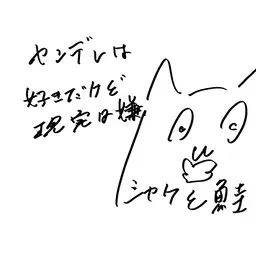 ヤンデレは
好きだけど
現実は嫌
シャケと鮭